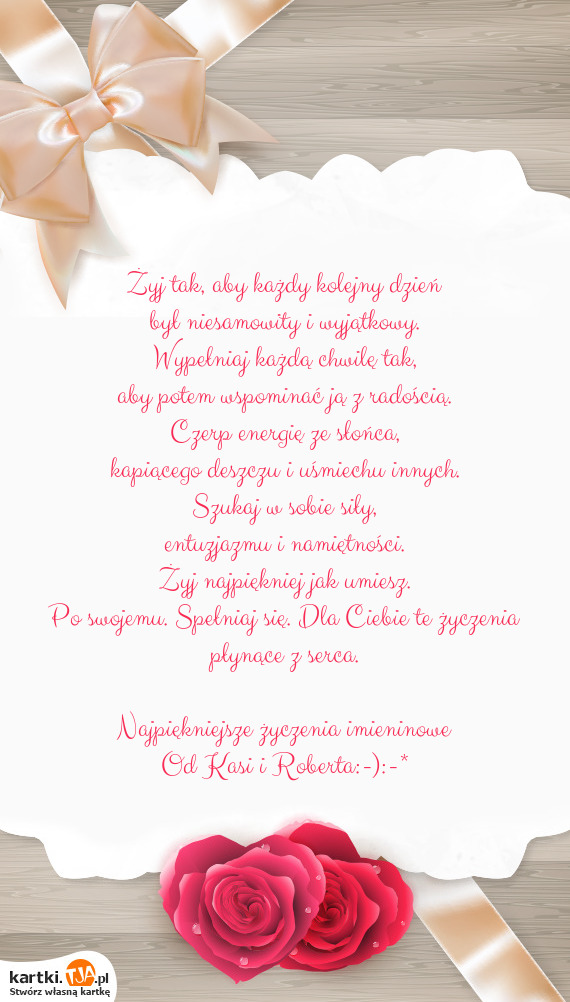 Żyj tak, aby każdy kolejny dzień
był niesamowity i wyjątkowy.
Wypełniaj każdą chwilę tak,
aby potem wspominać ją z radością.
Czerp energię ze słońca,
kapiącego deszczu i uśmiechu innych.
Szukaj w sobie siły,
entuzjazmu i namiętności.
Żyj najpiękniej jak umiesz.
Po swojemu. Spełniaj się. Dla Ciebie te życzenia
płynące z serca.
Najpiękniejsze życzenia imieninowe
Od Kasi i Roberta:-):-*
kartki.TJA.pl
Stwórz własną kartkę